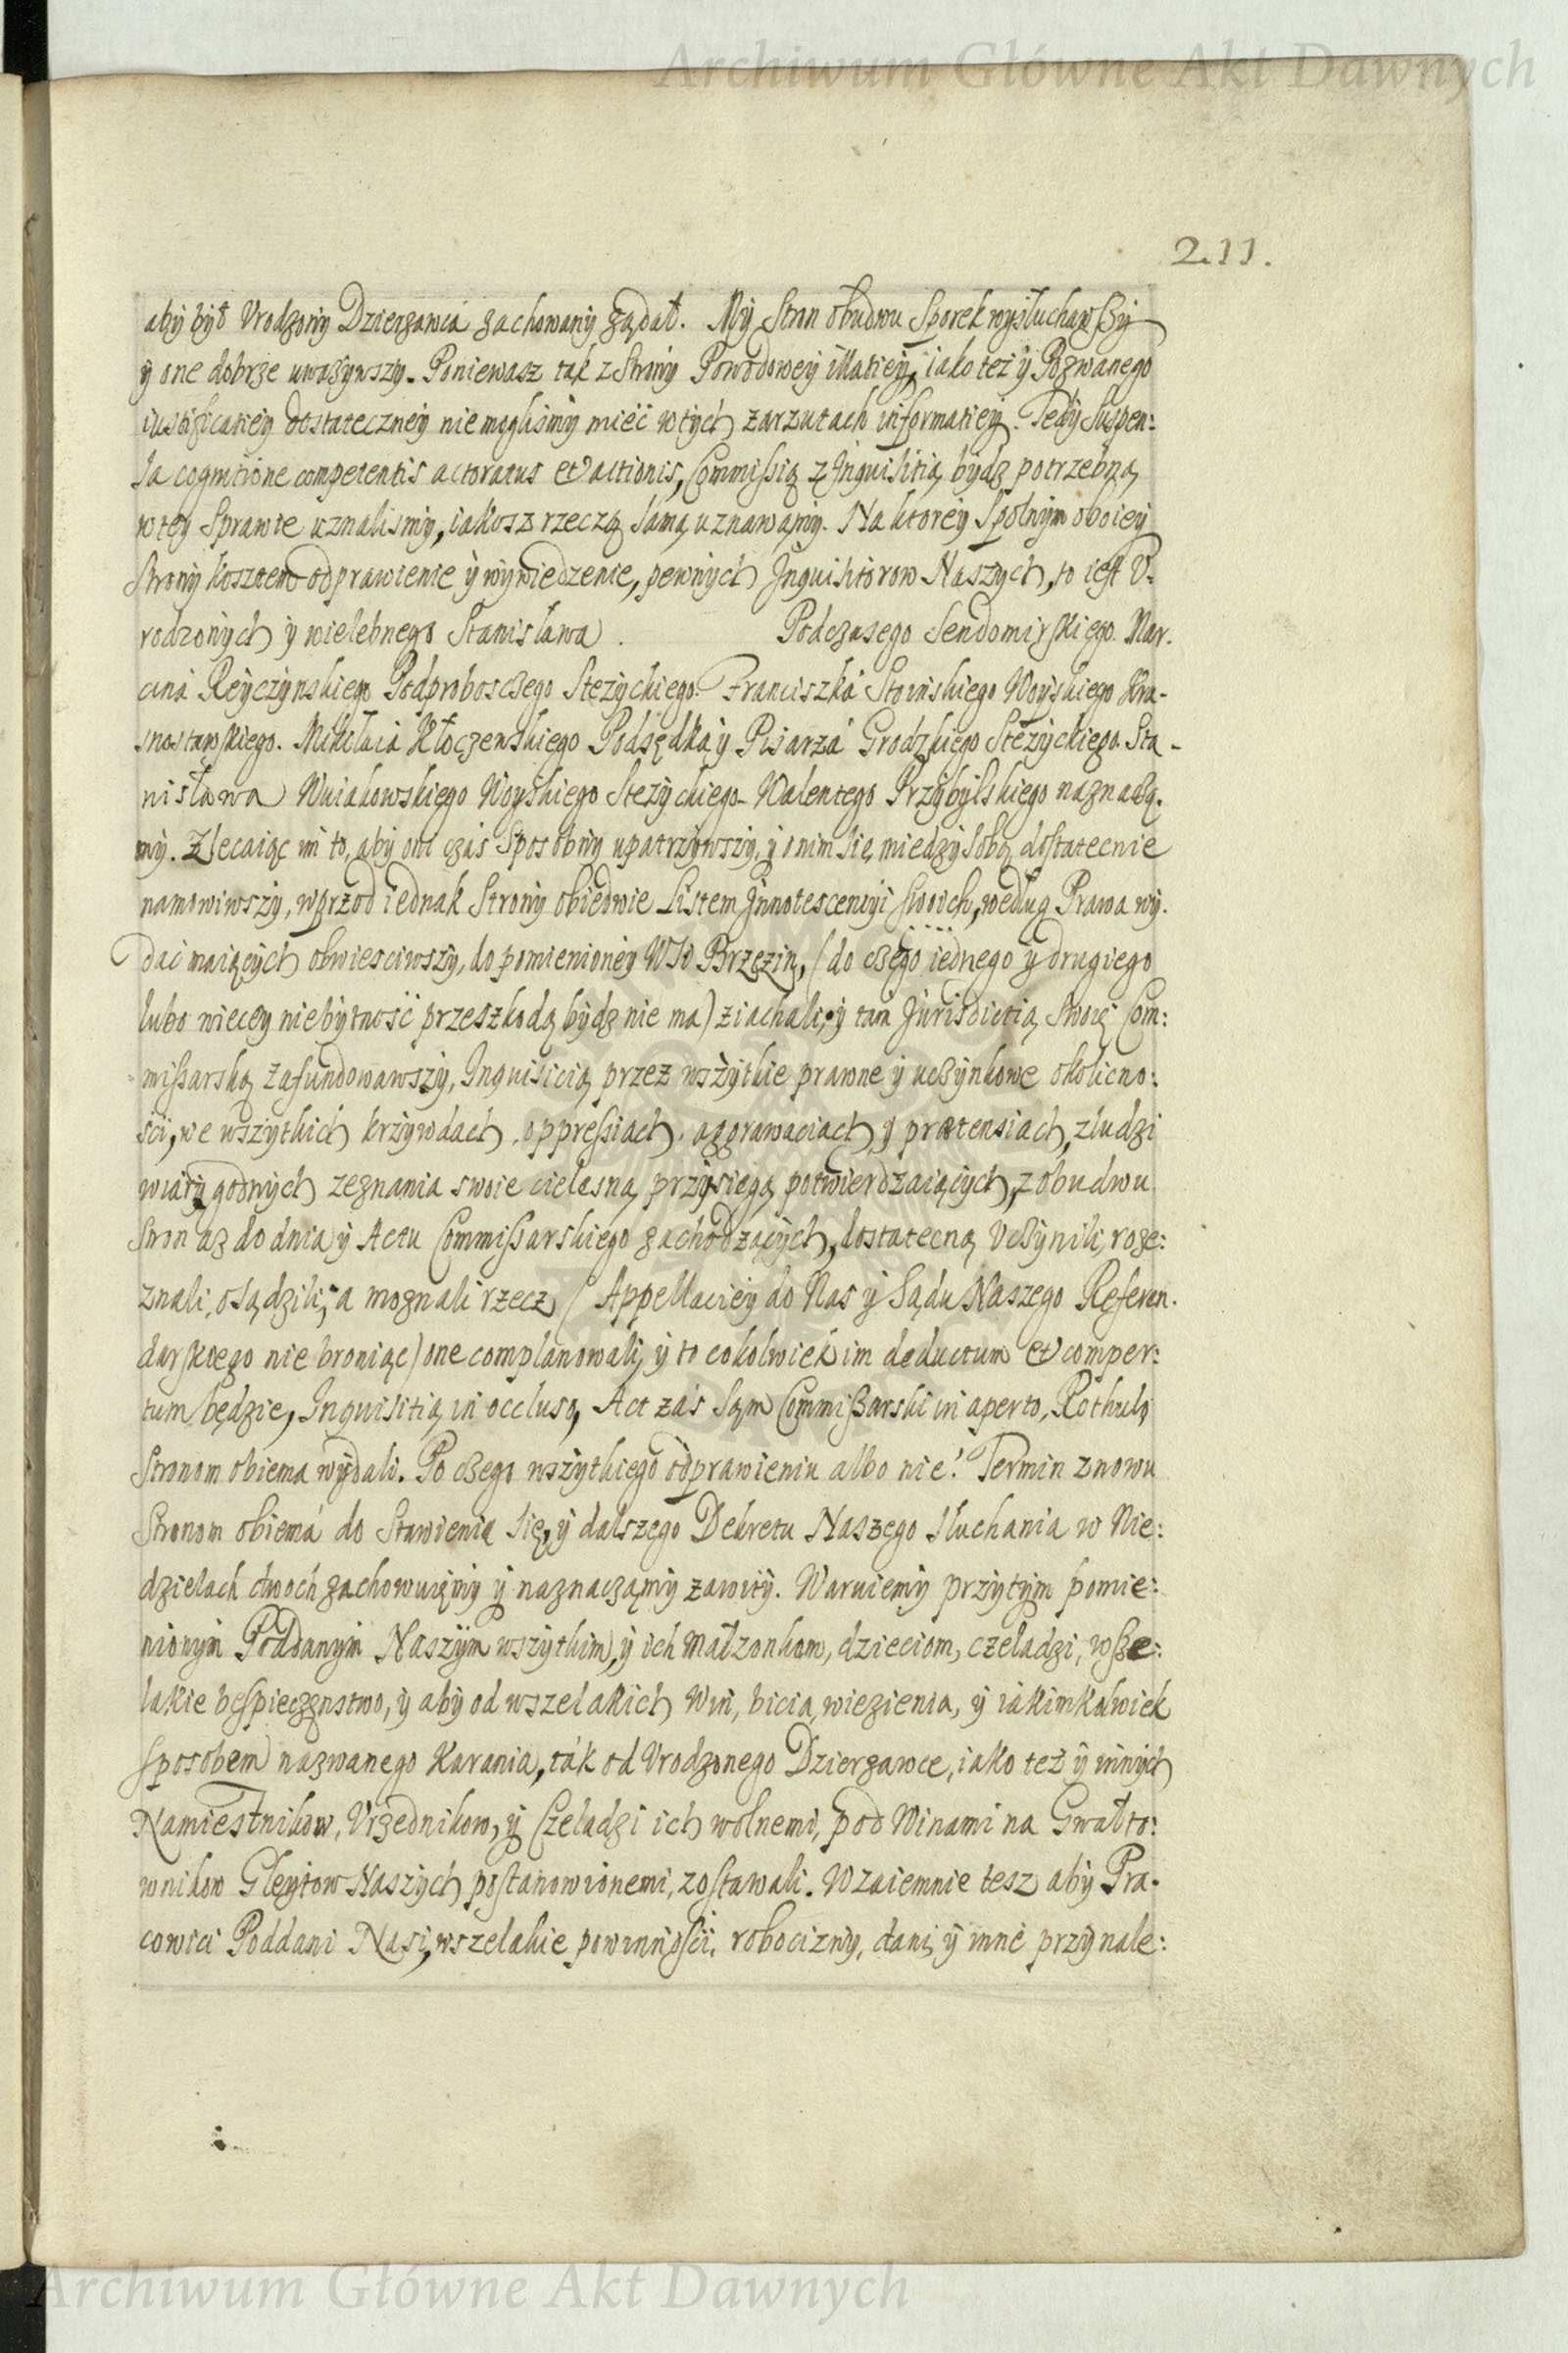 Archiwum Główne Akt Dawnych
211.
aby był Vrodzony Dzierzawca zachowany żądał. My Stron obudwu Sporek wysłuchawszy
y one dobrze uwazywszy. Poniewasz tak z Strony Powodowey illatiey, iako też y Pozwanego
iustificatiey dostateczney nie moglismy mieć w tych zarzutach informatiey. Tedy Suspen:
sa cognitione competentis actoratus et actionis, Commissią z Inquisitią bydz potrzebną
w tey Sprawie uznalismy, iakosz rzeczą samą uznawamy. Na ktorey Spolnym oboiey
Strony kosztem odprawienie y wywiedzenie, pewnych Inquisitorow Naszych, to iest V-
rodzonych y wielebnego Stanisława . Podczasego Sendomirskiego. Mar.
cina Reyczynskiego Podproboszczego Stezyckiego. Franciszka Stoinskiego Woyskiego Kra-
snostawskiego. Mikołaia Kłoczewskiego Podsędka y Pisarza Grodzkiego Stezyckiego. Sta-
nisława Wniakowskiego Woyskiego Stezyckiego. Walentego Przybylskiego naznacza.
my. Zlecaiąc im to, aby oni czas Sposobny upatrzywszy, y o nim się miedzy sobą dostatecnie
namowiwszy, wprzod iednak Strony obiedwie Listem Innotescencyi swoich, według Prawa wy.
dać maiących obwiesciwszy, do pomienioney WSi Brzezin, (do czego iednego y drugiego
lubo wiecey niebytność przeszkodą bydz nie ma) ziachali, y tam Jurisdictią Swoię Com:
missarską zafundowawszy, Inquisicią przez wszytkie prawne y uczynkowe okolicno:
sci, we wszytkich krzywdach, oppressiach, aggrawaciach, y praetensiach, z ludzi
wiary godnych zeznania swoie cielesną przysięgą potwierdzaiących, z obudwu
Stron az do dnia y Actu Commissarskiego zachodzących, dostatecną Vczynili, roze:
znali, osądzili, a moznali rzecz (Appellaciey do Nas y Sądu Naszego Referen.
darskiego nie broniąc) one complanowali, y to cokolwiek im deductum et comper:
tum będzie, Inquisitią in occluso, Act zaś Sąm Commissarski in aperto, Rothuło
Stronom obiema wydali. Po czego wszytkiego odprawieniu albo nie. Termin znowu
Stronom obiema do Stawienia się, y dalszego Dekretu Naszego słuchania w Nie:
dzielach dwoch zachowuiemy y naznaczamy zawity. Waruiemy przytym pomie:
nionym Poddanym Naszym wszytkim, y ich małzonkom, dzieciom, czeladzi, wsze:
lakie bespieczęnstwo, y aby od wszelakich Win, bicia, wiezienia, y iakimkolwiek
sposobem nazwanego karania, tak od Vrodzonego Dzierzawce, iako też y innych
Namiestnikow, Vrzednikow, y Czeladzi ich wolnemi, pod Winami na Gwałto:
wnikow Gleytow Naszych postanowionemi, zostawali. Wzaiemnie tesz aby Pra.
cowici Poddani Nasi, wszelakie powinności, robocizny, dani, y inne przynale:
Archiwum Główne Akt Dawnych